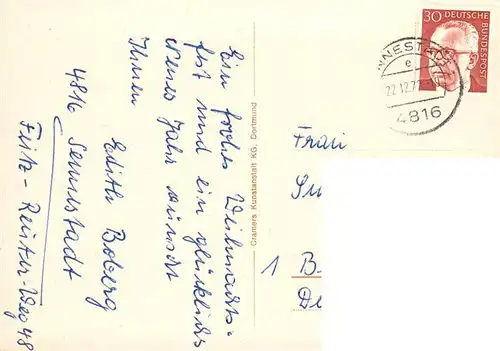 Ein frohes Weihnachts-
fest und ein glückliches
neues Jahr wünscht
Ihnen
Edith Boberg
4816 Sennestadt
Fritz-Reuter-Weg 48
Cramers Kunstanstalt KG, Dortmund
30 DEUTSCHE
BUNDESPOST
e
22.12.7
4816
Frau
1 B